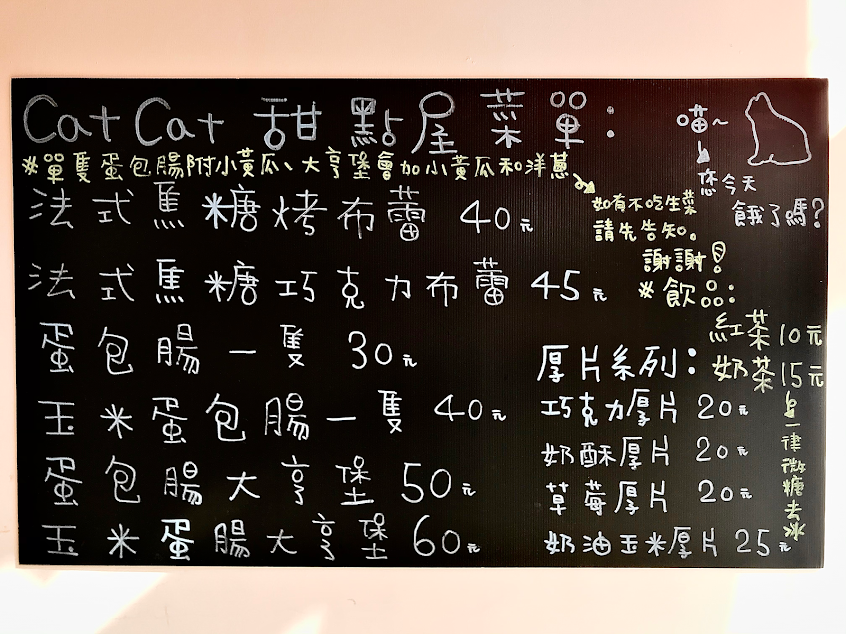 Cat Cat 甜點屋菜單：
※單隻蛋包腸附小黃瓜、大亨堡會加小黃瓜和洋蔥
如有不吃生菜
請先告知。
謝謝！
喵~
您今天
餓了嗎？
法式焦糖烤布蕾 40元
法式焦糖巧克力布蕾 45元
蛋包腸一隻 30元
玉米蛋包腸一隻 40元
蛋包腸大亨堡 50元
玉米蛋腸大亨堡 60元
※飲品：
紅茶10元
奶茶15元
一律微糖去冰
厚片系列：
巧克力厚片 20元
奶酥厚片 20元
草莓厚片 20元
奶油玉米厚片 25元